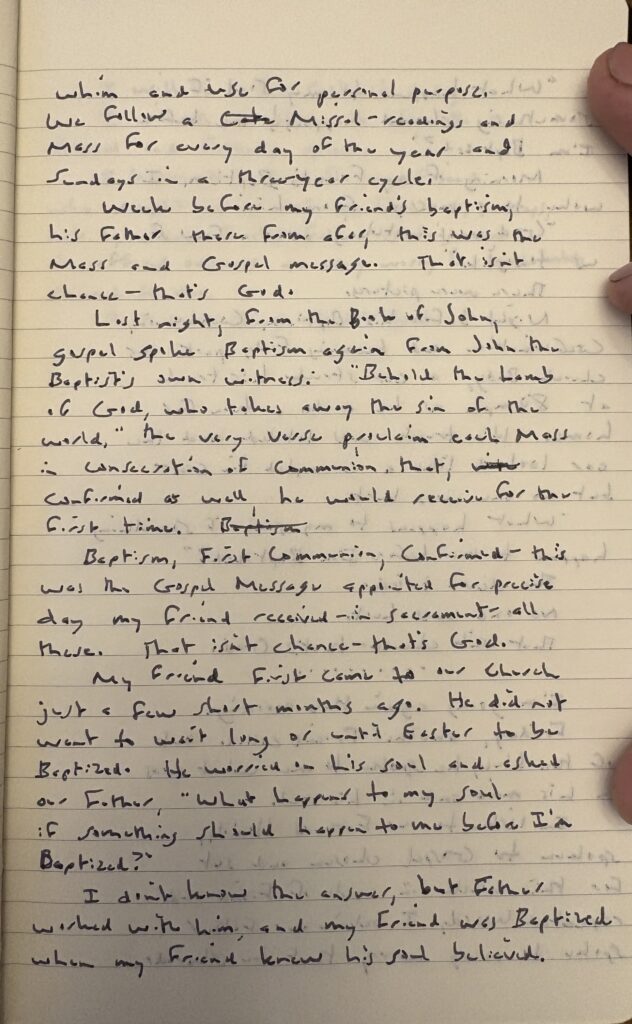 whim and use for personal purpose.
We follow a Missal-readings and
Mass for every day of the year and
Sundays in a three year cycle.
Week before my friend's baptism,
his Father there from afar, this was the
Mass and Gospel message. That isn't
chance - that's God.
Last night, from the Book of John,
gospel spoke Baptism again from John the
Baptist's own witness: "Behold the Lamb
of God, who takes away the sin of the
world," the very verse proclaim each Mass
in consecration of Communion that,
confirmed as well, he would receive for the
first time. Baptism
Baptism, First Communion, Confirmed - this
was the Gospel Message appointed for precise
day my friend received - in sacrament - all
these. That isn't chance - that's God.
My Friend First came to our Church
just a few short months ago. He did not
want to wait long or until Easter to be
Baptized. He worried on his soul and asked
our Father, "What happens to my soul
if something should happen to me before I'm
Baptized?"
I don't know the answer, but Father
worked with him, and my Friend was Baptized
when my Friend knew his soul believed.